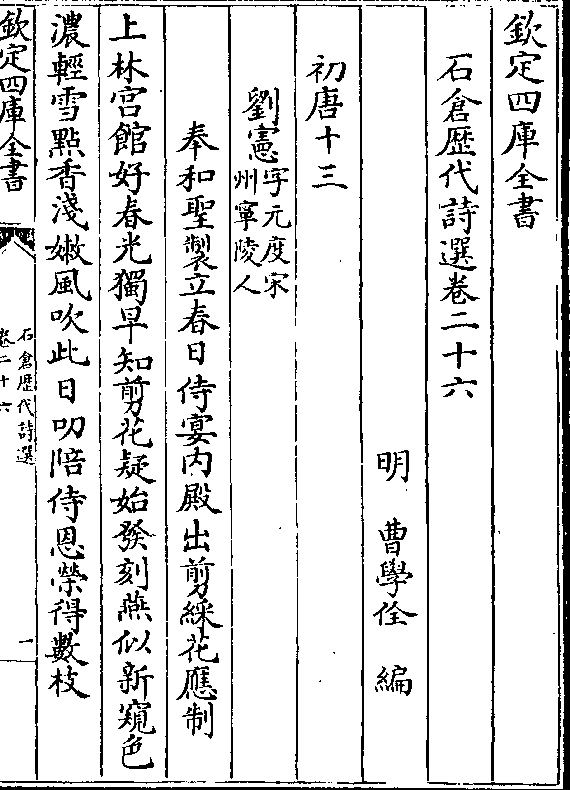 欽定四庫全書
石倉歴代詩選卷二十六
明 曹學佺 編
初唐十三
劉憲字元度宋州寧陵人
奉和聖製立春日侍宴内殿出剪綵花應制
上林宫館好春光獨早知剪花疑始發刻燕似新窺色
濃輕雪點香淺嫩風吹此日叨陪侍恩榮得數枝
欽定四庫全書
石倉歴代詩選
卷二十六
一